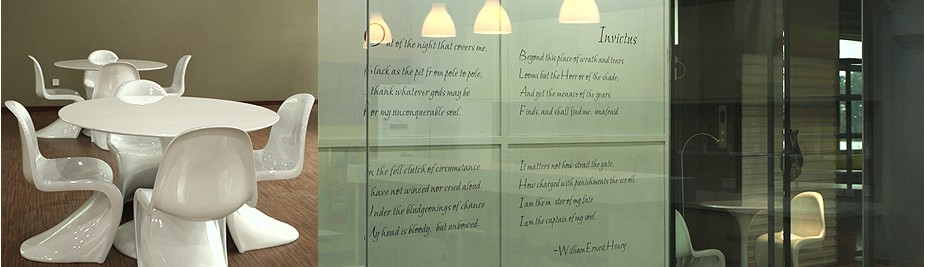 Invictus
Out of the night that covers me,
Black as the pit from pole to pole,
I thank whatever gods may be
For my unconquerable soul.
In the fell clutch of circumstance
I have not winced nor cried aloud
Under the bludgeonings of chance
My head is bloody, but unbowed.
Beyond this place of wrath and tears
Looms but the Horror of the shade,
And yet the menace of the years
Finds, and shall find me, unafraid.
It matters not how strait the gate,
How charged with punishments the scroll,
I am the master of my fate
I am the captain of my soul.
~William Ernest Henry